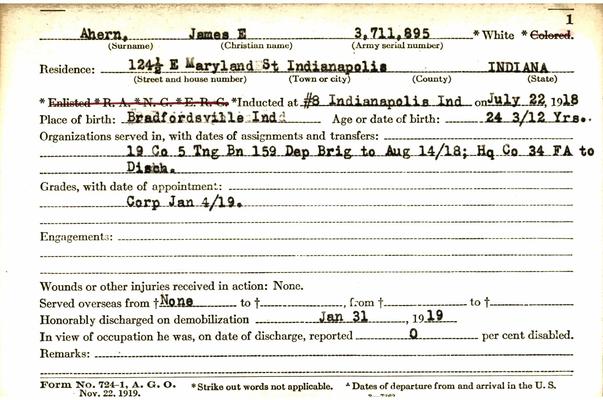 1
Ahern, James E 3,711,895 * White * Colored.
(Surname) (Christian name) (Army serial number)
Residence: 124½ E Maryland St Indianapolis INDIANA
(Street and house number) (Town or city) (County) (State)
* Enlisted * R. A. * N. G. * E. R. C. * Inducted at #8 Indianapolis Ind on July 22, 1918
Place of birth: Bradfordsville Ind Age or date of birth: 24 3/12 Yrs.
Organizations served in, with dates of assignments and transfers:
19 Co 5 Tng Bn 159 Dep Brig to Aug 14/18; Hq Co 34 FA to
Disch.
Grades, with date of appointment:
Corp Jan 4/19.
Engagements:
Wounds or other injuries received in action: None.
Served overseas from † None to †, from † to †
Honorably discharged on demobilization Jan 31, 1919
In view of occupation he was, on date of discharge, reported 0 per cent disabled.
Remarks:
Form No. 724-1, A. G. O. * Strike out words not applicable. † Dates of departure from and arrival in the U. S.
Nov. 22, 1919.